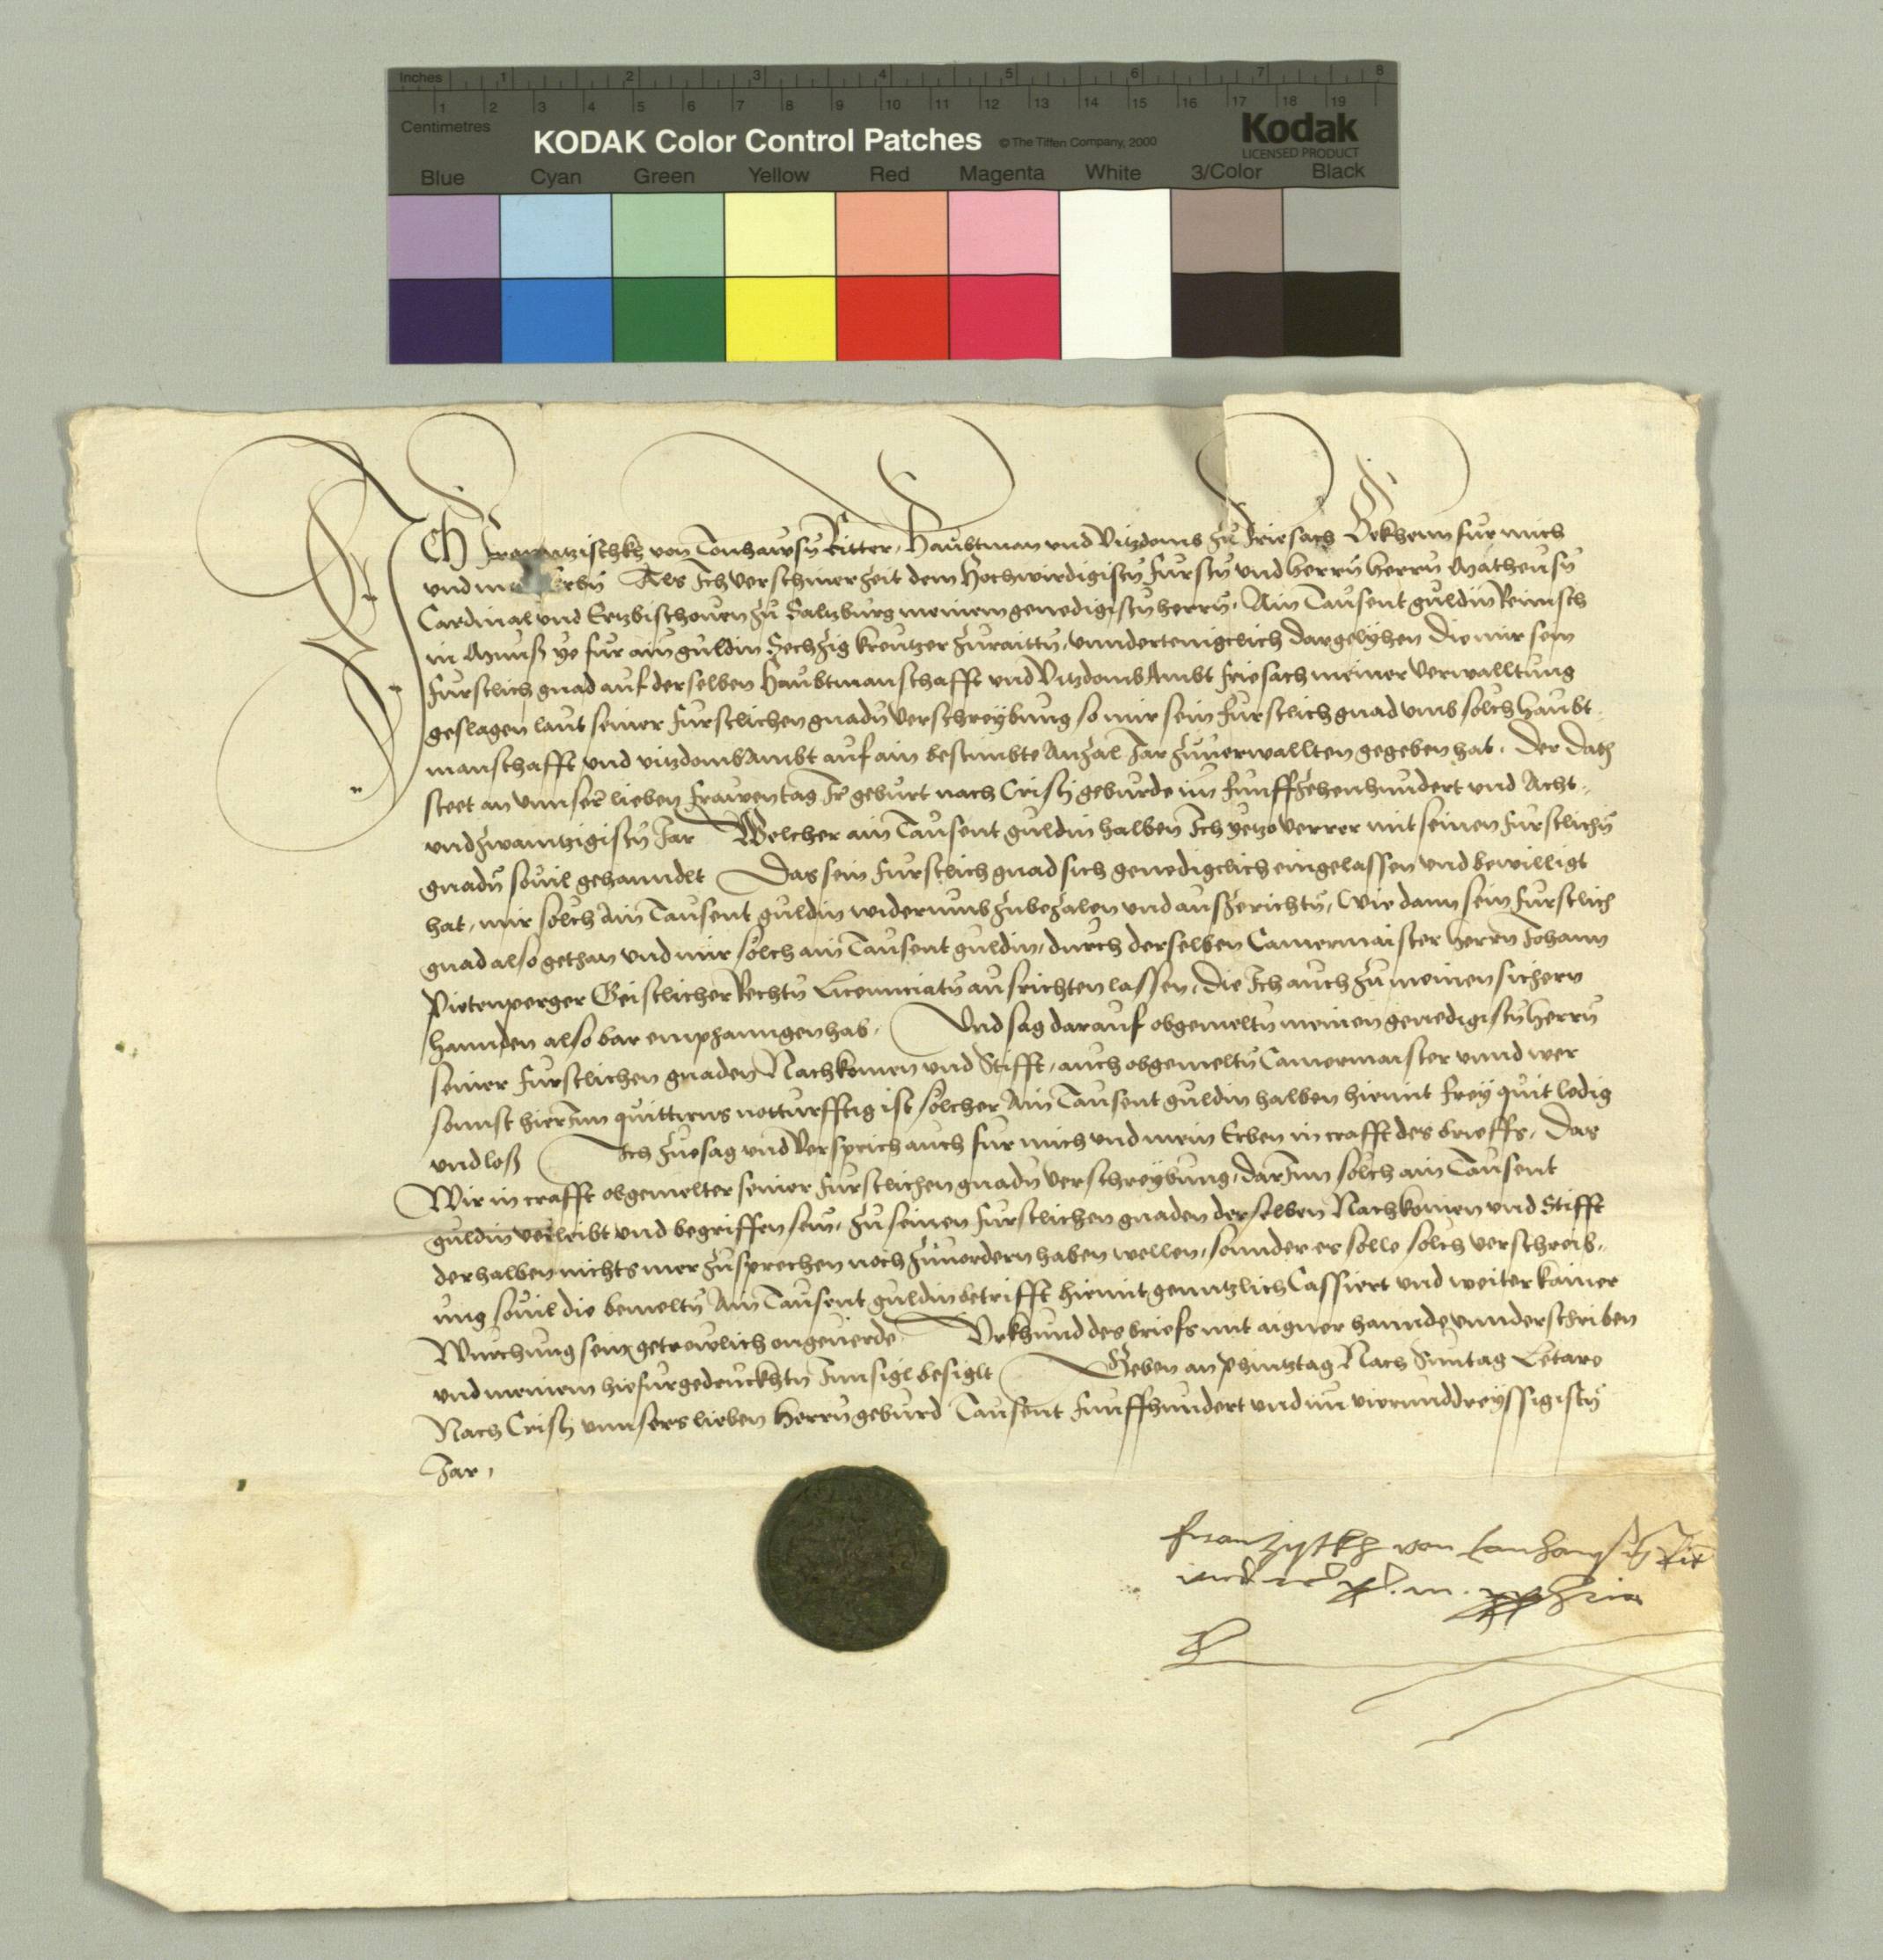 Inches 1 2 3 4 5 6 7 8
1 2 3 4 5 6 7 8 9 10 11 12 13 14 15 16 17 18 19
Centimetres
KODAK Color Control Patches © The Tiffen Company, 2000 Kodak
LICENSED PRODUCT
Blue Cyan Green Yellow Red Magenta White 3/Color Black
Ich Franntzischkh von Tonhawsn Ritter, Haubtman und Vitzdomb zu Friesach Bekhenn fur mich
und Erbn Als Ich verschiner zeit dem Hochwirdigistn Furstn und herrn herrn Matheusn
Cardinal und Ertzbischouen zu Saltzburg meinem genedigistn herrn, Ain Tausent guldin Reinisch
in Munss ye fur ain guldin Sechzig kreutzer zuraittn, unndertenigclich dargelyhen die mir sein
furstlich gnad auf derselben Haubtmanschafft und Vitzdomb Ambt Friesach meiner verwalltung
geslagen laut seiner furstlichen gnadn verschreybung so mir sein furstlich gnad umb solch haubt-
manschafft und vitzdomb Ambt auf ain bestimbte Anzal Jar zuuerwallten gegeben hab. Der datz
steet an unnser lieben Frawen tag Ir geburt nach Cristj geburde im funffzehenhundert und Acht-
undzwaintzigistn Jar Welcher ain Tausent guldin halben Ich yetzo verrer mit seinen furstlichn
gnadn souil gehanndlt Das sein furstlich gnad sich genedigclich eingelassen und bewilligt
hat, mir solch Ain Tausent guldin widerumb zubezalen und ausszerichtn, wie dann sein furstlich
gnad also gethan und mir solch ain Tausent guldin, durch derselben Camermaister herrn Johann
Pietenperger Geistlicher Rechtn Licenciatn ausrichten lassen, die Ich auch zu meinen sichern
hannden also bar emphanngen hab. Und sag darauf obgemeltn meinen genedigistn herrn
seiner furstlichen gnaden Nachkomen und Stifft, auch obgemeltn Camermaister unnd wer
sonnst hierInn quittirns notturfftig ist solcher Ain Tausent guldin halben hiemit frey quit ledig
und loss Ich zuesag und versprich auch fur mich und mein Erben in crafft des brieffs, Das
Wir in crafft obgemelter seiner furstlichen gnadn verschreybung, darInn solch ain Tausent
guldin verleibt und begriffen sein, zu seinen furstlichen gnaden derselben Nachkomen und Stifft
derhalben nichts mer zusprechen noch zuuordern haben wellen, sonnder es solle solch verschreib-
ung souil die bemeltn Ain Tausent guldin betrifft hiemit genntzlich Cassiert und weiter kainer
Wurchung sein getrewlich ongeuerde Urkhund des briefs mit aigner hannde unnderschriben
und meinem hiefurgedruckhtn Innsigl besiglt Geben an Phintztag Nach Sunntag Letare
Nach Cristj unnsers lieben Herrn geburd Tausent Funffhundert und im vierunddreyssigistn
Jar,
Franzyskh von Tanhawsn Rit